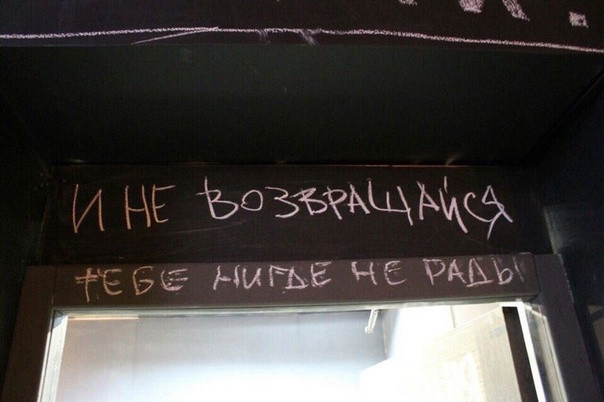 И НЕ ВОЗВРАЩАЙСЯ
ТЕБЕ НИГДЕ НЕ РАДЫ